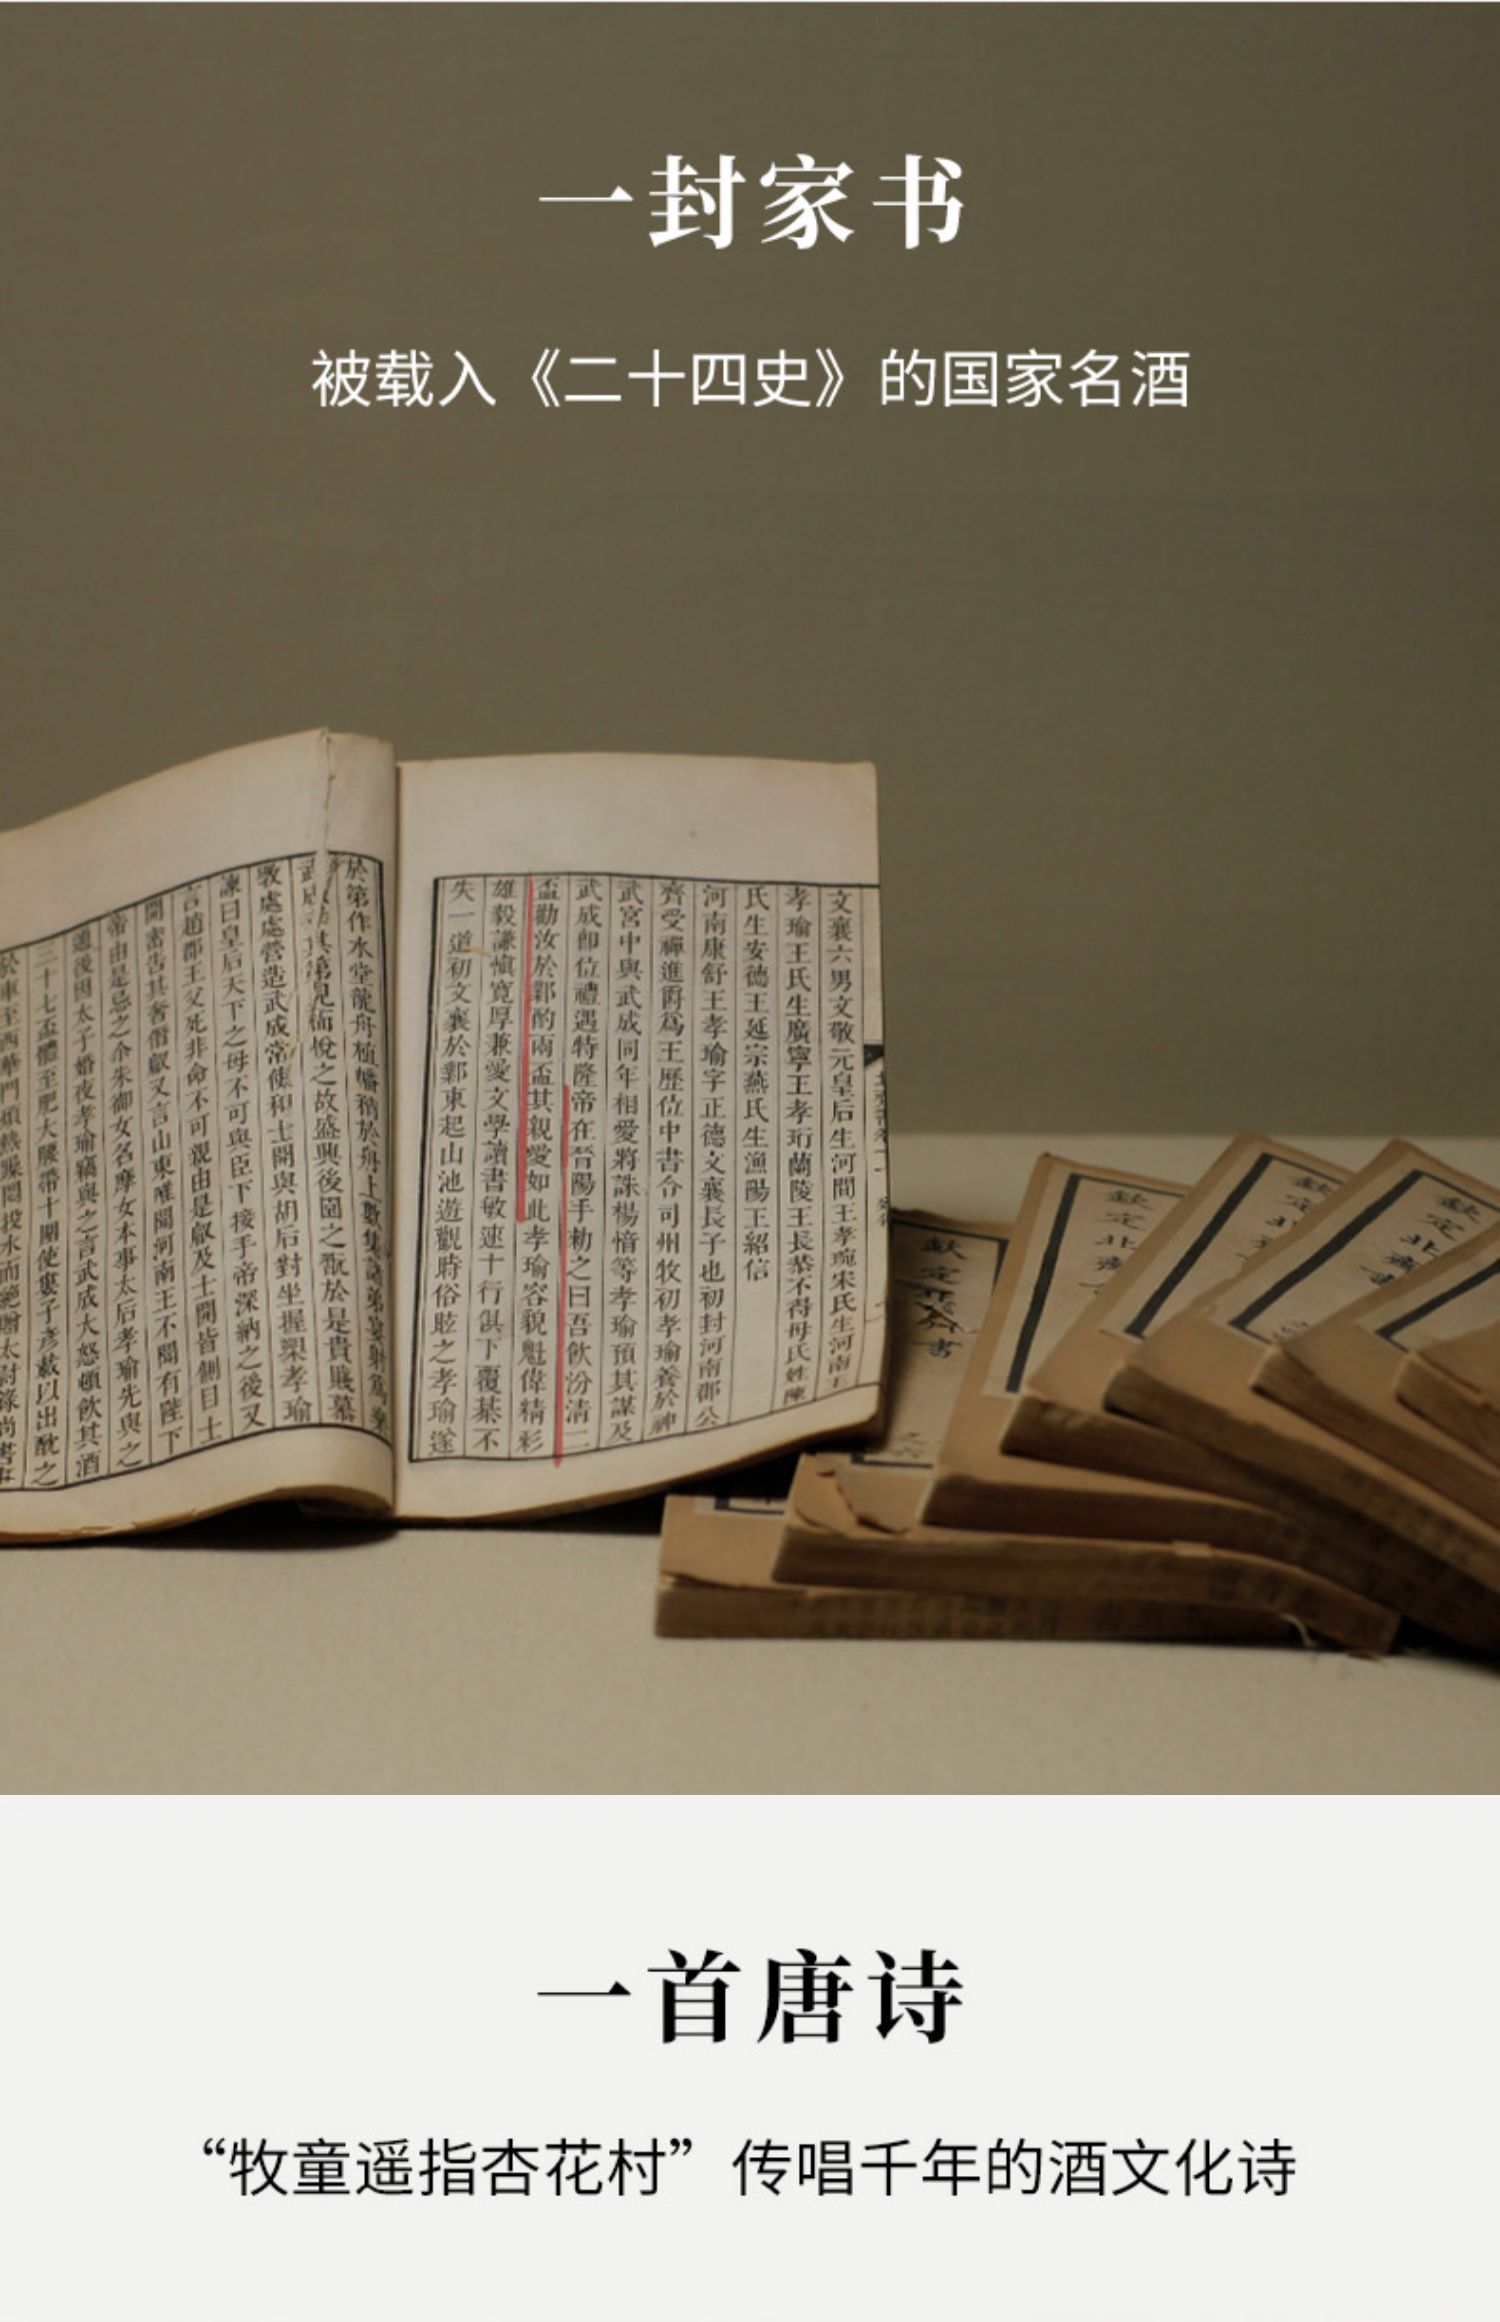 一封家书
被载入《二十四史》的国家名酒
文襄六男文敬元皇后生河間王孝琬宋氏生河南王
孝瑜王氏生廣寧王孝珩蘭陵王長恭不得母氏姓陳
氏生安德王延宗燕氏生漁陽王紹信
河南康舒王孝瑜字正德文襄長子也初封河南郡公
齊受禪進爵爲王歷位中書令司州牧初孝瑜養於神
武宮中與武成同年相愛將誅楊愔等孝瑜預其謀及
武成卽位禮遇特隆帝在晉陽手勑之曰吾飲汾清二
盃勸汝於鄴酌兩盃其親愛如此孝瑜容貌魁偉精彩
雄毅謙愼寬厚兼愛文學讀書敏速十行俱下覆棊不
失一道初文襄於鄴東起山池遊觀時俗眩之孝瑜遂
於第作水堂龍舟植幡矟於舟上數集諸弟宴射爲樂
武成幸其第見而悅之故盛興後園之翫於是貴賤慕
斆處處營造武成常使和士開與胡后對坐握槊孝瑜
諫曰皇后天下之母不可與臣下接手帝深納之後又
言趙郡王父死非命不可親由是叡及士開皆側目士
開密告其奢僭叡又言山東唯聞河南王不聞有陛下
帝由是忌之尒朱御女名摩女本事太后孝瑜先與之
通後因太子婚夜孝瑜竊與之言武成大怒頓飲其酒
三十七盃體至肥大腰帶十圍使婁子彥載以出酖之
於車至西華門煩熱躁悶投水而絕贈太尉錄尚書事
欽定北齊書
欽定北齊書
欽定北
欽定北齊書
一首唐诗
“牧童遥指杏花村”传唱千年的酒文化诗